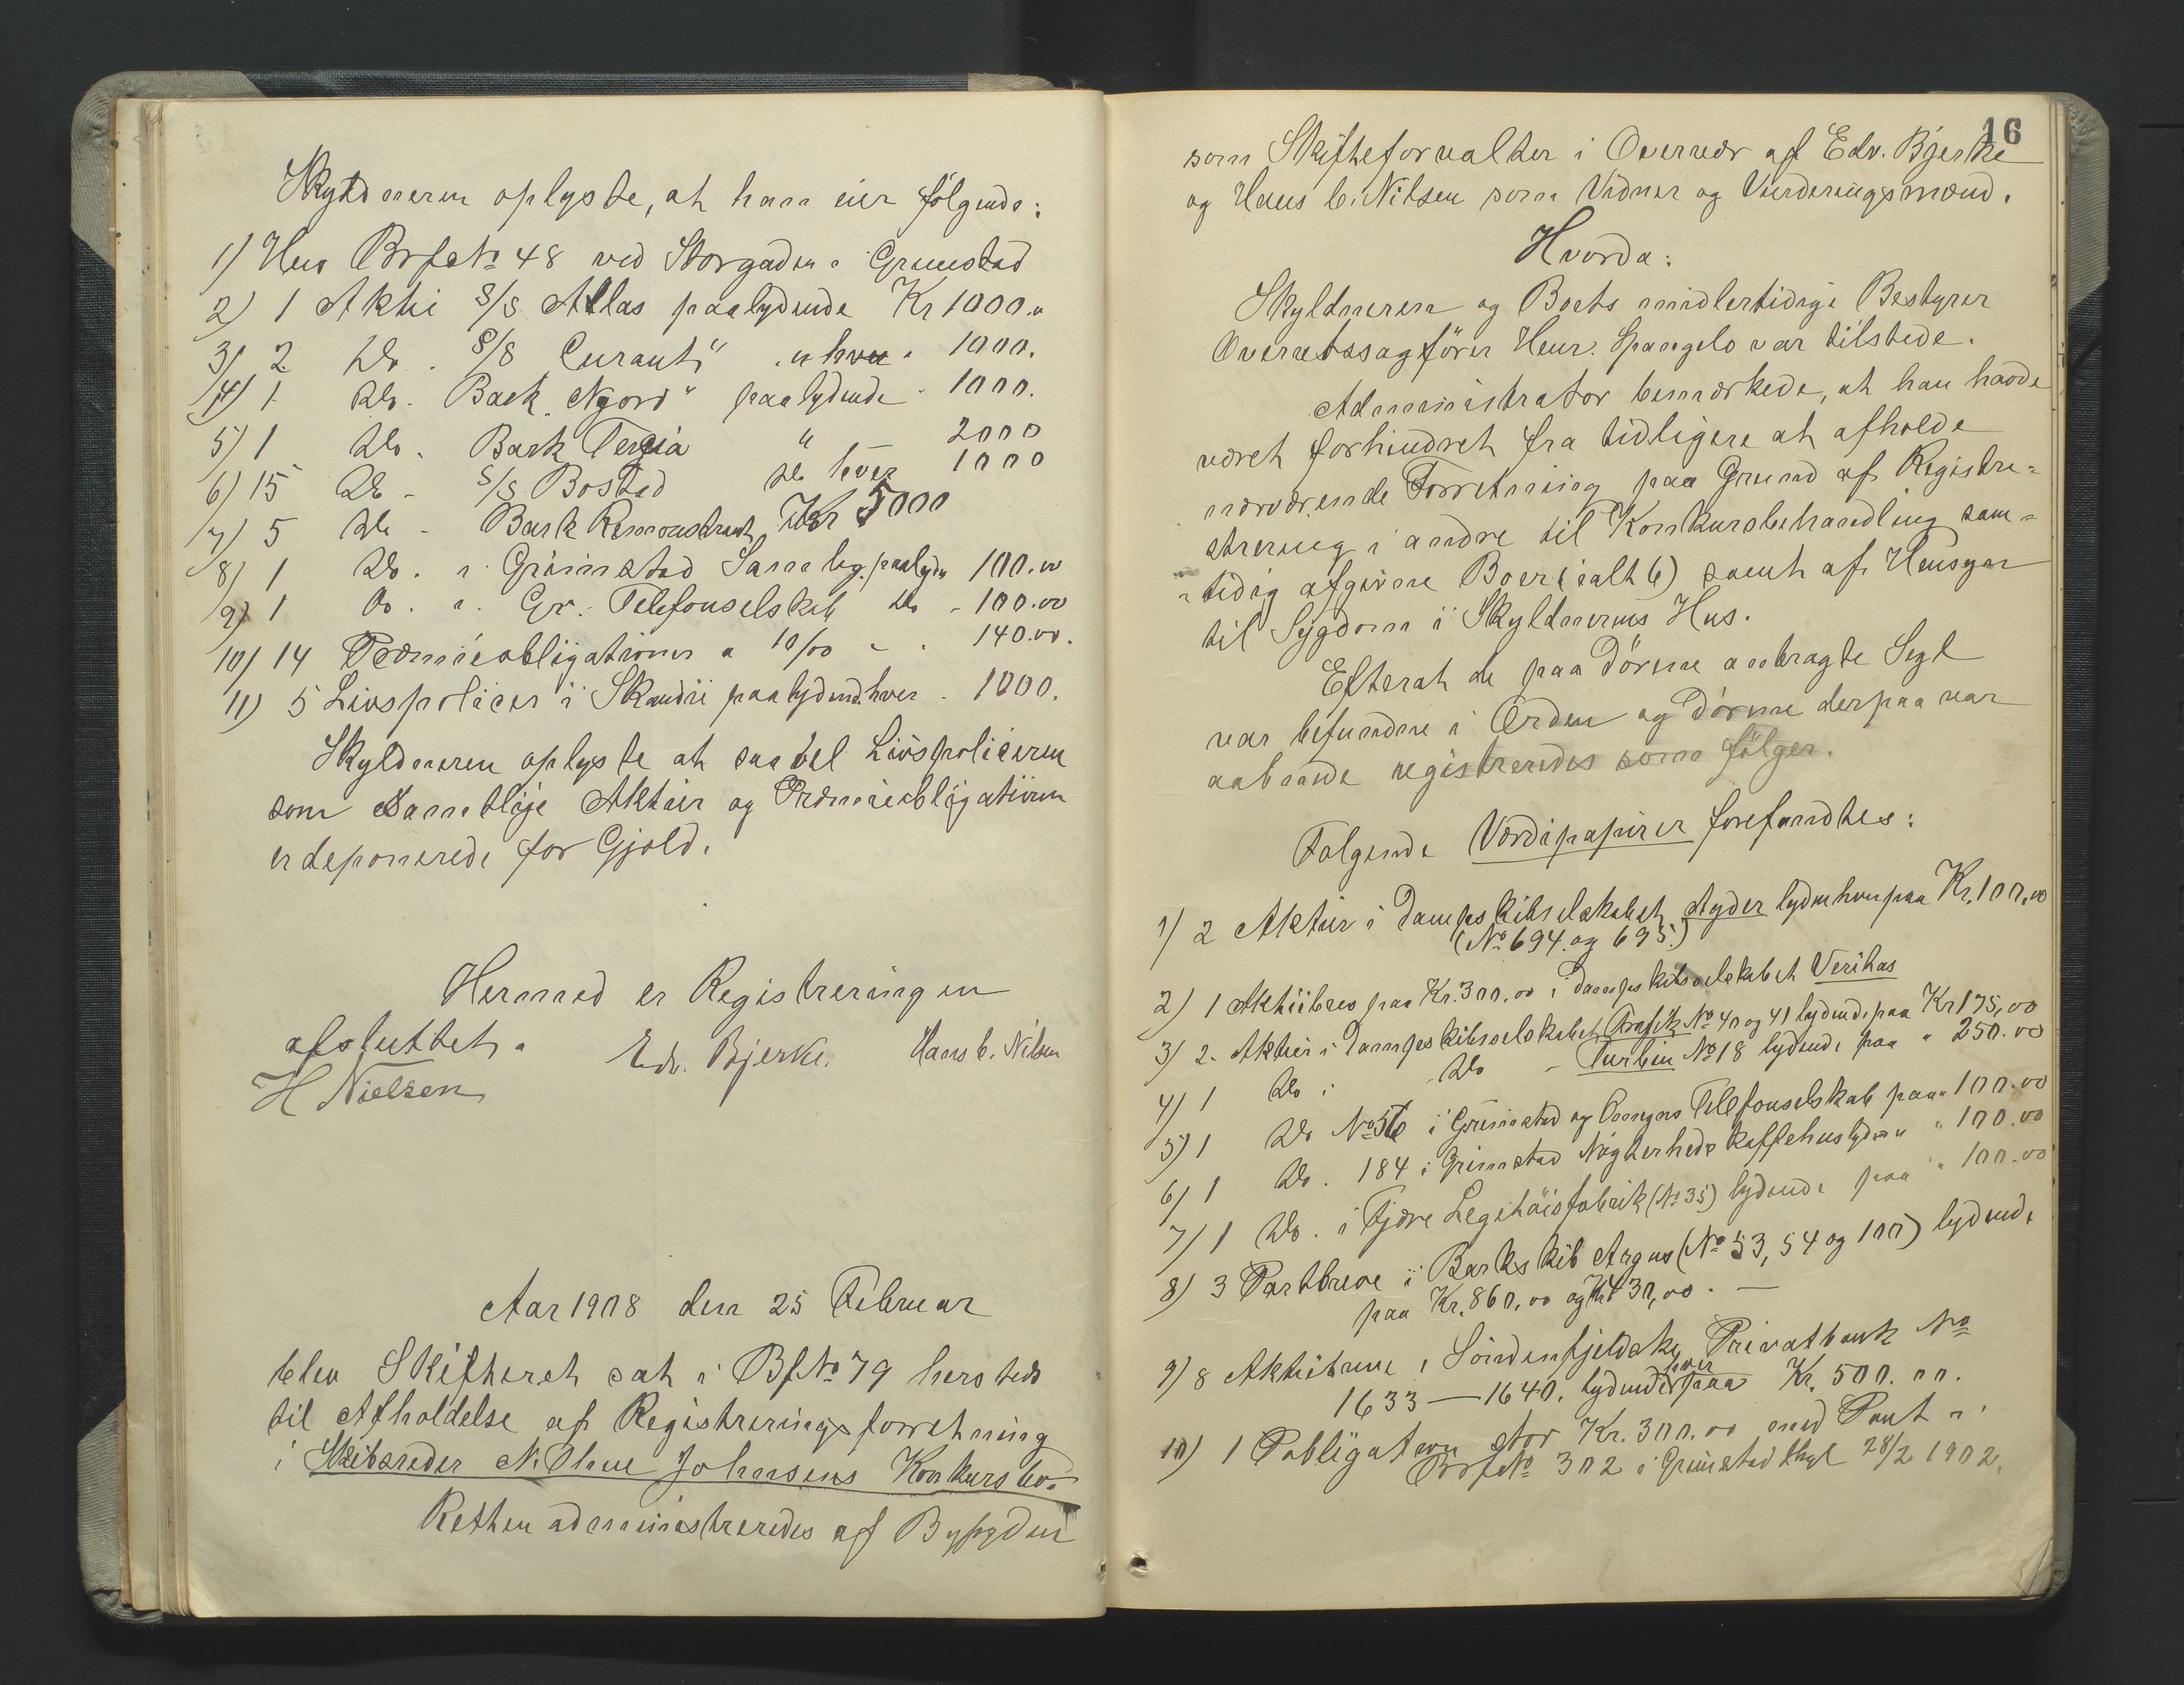 Skyldneren oplyste, at han eier følgende:
1) Hus Brfs No 48 ved Storgaden i Grimstad
2) 1 Aktie S/S Atlas paalydende Kr 1000.00
3) 2 Do. S/S Curant" " hver " 1000.
4) 1 Do. Bark "Njord" paalydende " 1000.
5) 1 Do. Bark Tergia " — 2000
6) 15 Do - S/S Bostad Do hver 1000
7) 5 Do - Bark Remonstrant Kr 5000
8) 1 Do. i Grimstad Samlag. paalyd. 100.00
9) 1 Do. i. Gr. Telefonselskab Do - 100.00
10) 14 Præmieobligationer a 10/00 - . 140.00.
11) 5 Livspolicer i Skandii paalydend. hver . 1000.
Skyldneren oplyste at saavel Livspolicerne
som samtlige Aktier og Præmieobligationen
er deponerede for Gjæld.
Hermed er Registreringen
afsluttet.
H Nielsen Edv. Bjerke. Hans C. Nilsen
Aar 1908 den 25 Februar
blev Skifteret sat i Bf No 79 hersteds
til Afholdelse af Registreringsforretning
i Skibsreder N. Olme Johnsens Konkursbo.
Retten administreredes af Byfogden
16
som Skifteforvalter i Overvær af Edv. Bjerke
og Hans C. Nilsen som Vidner og Vurderingsmænd.
Hvorda:
Skyldneren og Boets midlertidige Bestyrer
Overretssagfører Henr. Spangelo var tilstede.
Administrator bemærkede, at han havde
været forhindret fra tidligere at afholde
nærværende Forretning paa Grund af Registre=
strering i andre til Konkursbehandling sam=
=tidig afgivne Boer (ialt 6) samt af Hensyn
til Sygdom i Skyldnerens Hus.
Efterat de paa Dørene anbragte Segl
var befundne i Orden og Dørene derpaa var
aabnede registreredes som følger.
Følgende Værdipapirer forefandtes:
1) 2 Aktier i Dampskibselskabet Agder lyden hver paa Kr. 100.00
(No 694. og 695.)
2) 1 Aktiebrev paa Kr. 300.00 i Dampskibsselskabet Veritas
3) 2. Aktier i Dampskibsselskabet Grafik No 40 og 41 lydende paa Kr 175,00
4) 1 Do i Do - Turbin No 18 lydende paa " 250.00
5) 1 Do No 56 i Grimstad og Omegns Telefonselskab paa " 100.00
6) 1 Do. 184 i Grimstad Nøgterheds Kaffehus lyden " " 100.00
7) 1 Do. i Fjære Legitøisfabrik (No 35) lydende paa " 100.00
8) 3 Partbreve i Barkskib Argus (No 53, 54 og 100) lydende
paa Kr. 860.00 og Kr 430,00. —
9) 8 Aktiebreve i Søndenfjeldske Privatbank No
1633 — 1640. lydende hver paa Kr. 500.00.
10) 1 Pobligation stor Kr. 300.00 med Pant i
Brfs No 302 i Grimstad thgl 28/2 1902.